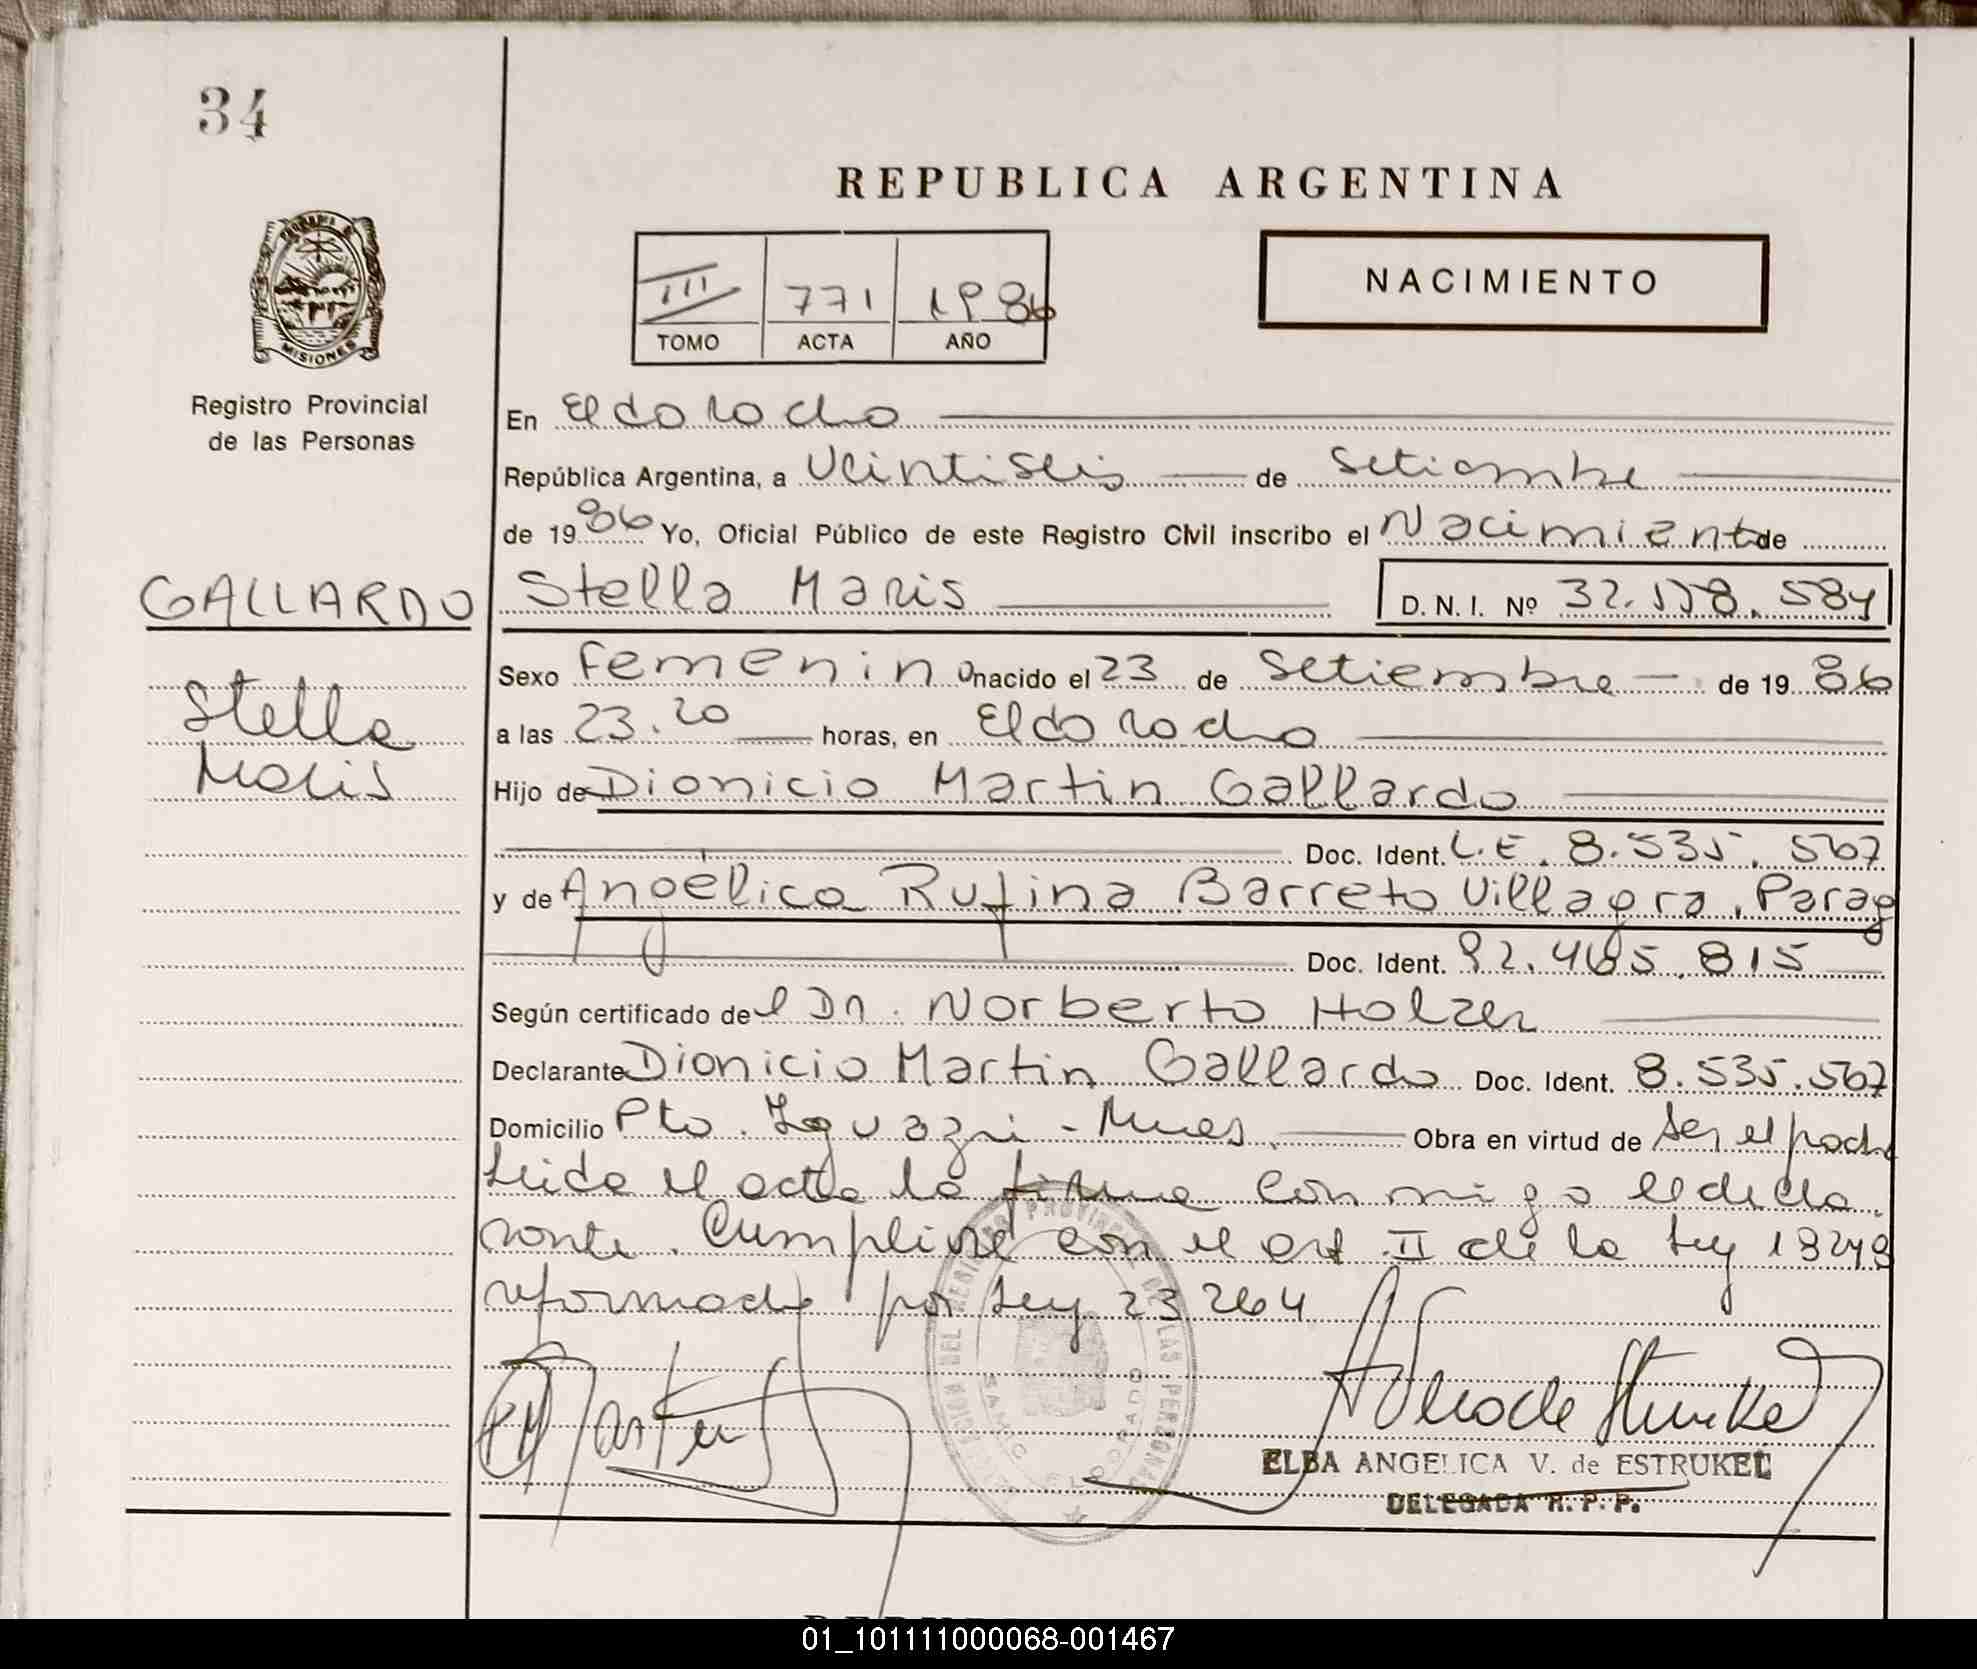 34
REPUBLICA ARGENTINA
NACIMIENTO
III 771 1986
TOMO ACTA AÑO
MISIONES
Registro Provincial
de las Personas
En Eldorado
República Argentina, a Veintiseis de Setiembre
de 1986 Yo, Oficial Público de este Registro Civil inscribo el Nacimiento de
GALLARDO
Stella Maris D. N. I. Nº 32.118.584
Stella
Maris
Sexo Femenino nacido el 23 de Setiembre de 1986
a las 23.20 horas, en Eldorado
Hijo de Dionicio Martin Gallardo
Doc. Ident. L.E. 8.535.567
y de Angélica Rufina Barreto Villagra, Parag
Doc. Ident. 92.465.815
Según certificado del Dr. Norberto Holzer
Declarante Dionicio Martin Gallardo Doc. Ident. 8.535.567
Domicilio Pto. Iguazú - Mnes. Obra en virtud de ser el padre
Leida el acta la firma conmigo el decla
rante. Cumplise con el art. II de la Ley 18248
reformada por Ley 23264
ELBA ANGELICA V. de ESTRUKEL
DELEGADA R. P. P.
01_101111000068-001467